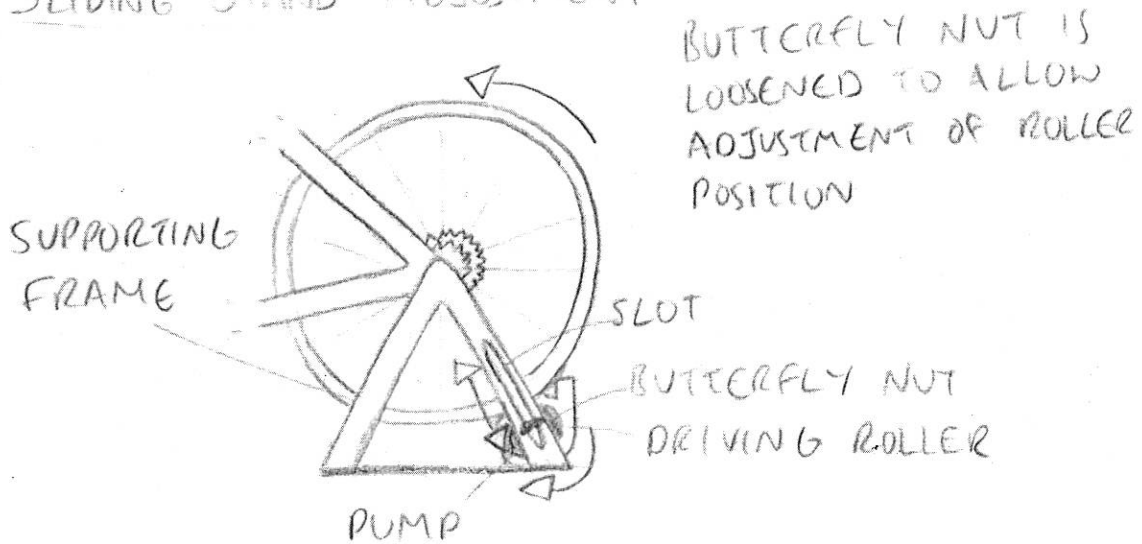 SLIDING STAND ADJUSTMENT
BUTTERFLY NUT IS
LOOSENED TO ALLOW
ADJUSTMENT OF ROLLER
POSITION
SUPPORTING
FRAME
SLOT
BUTTERFLY NUT
DRIVING ROLLER
PUMP